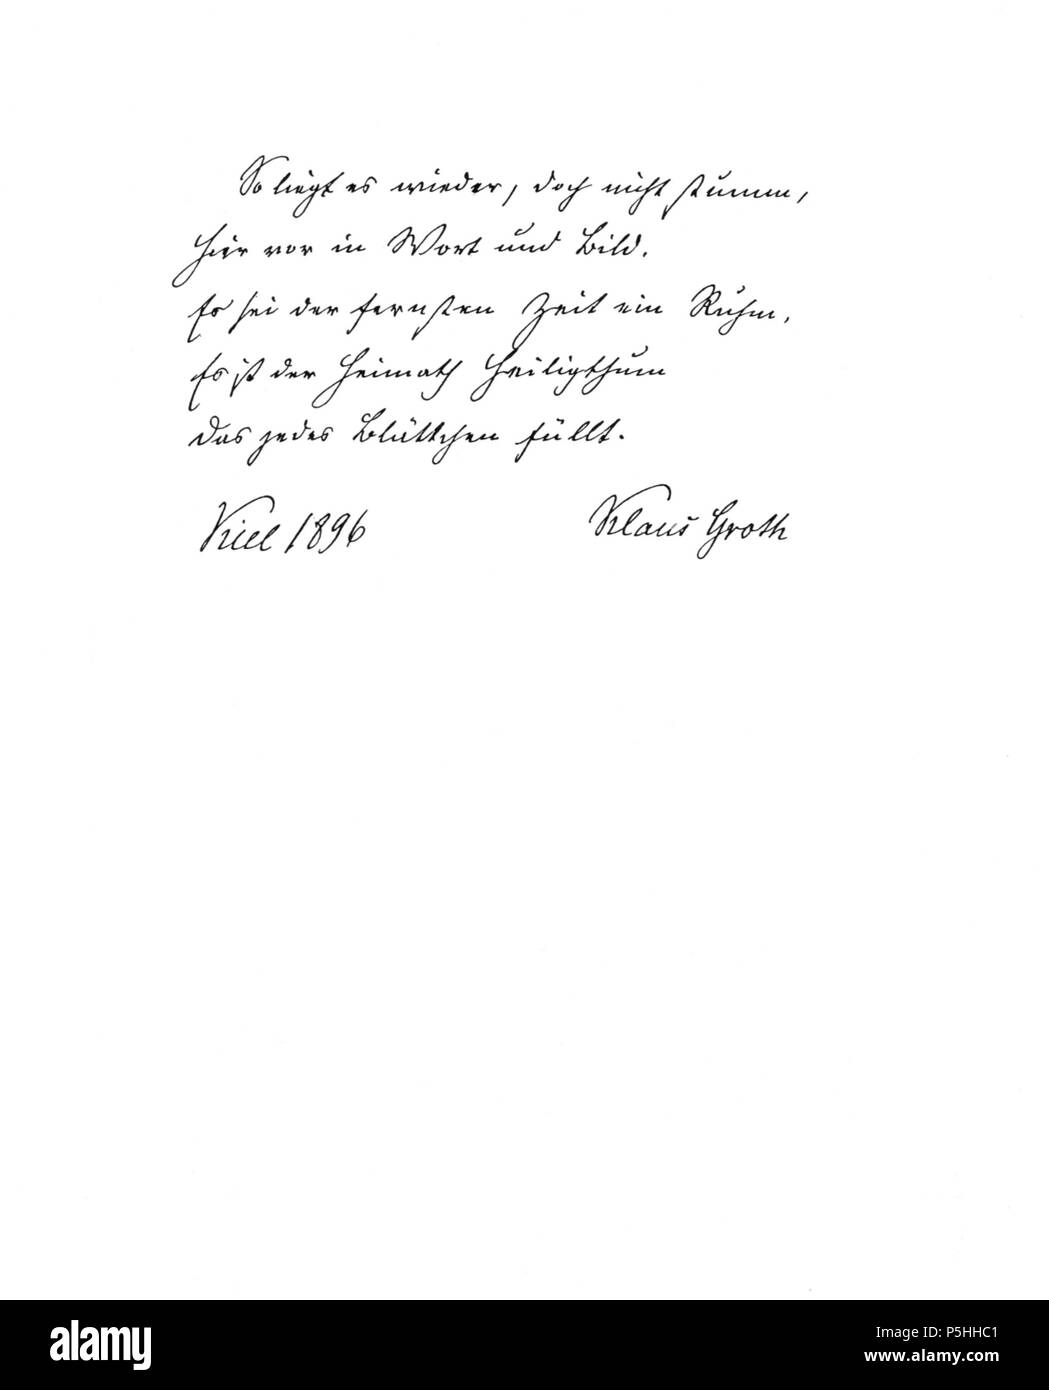 So liegt es wieder, doch nicht stumm,
Hier vor in Wort und Bild.
Es sei der fernsten Zeit ein Ruhm,
Es ist der Heimath Heiligthum
Das jedes Blättchen füllt.
Kiel 1896 Klaus Groth
alamy
Image ID: P5HHC1
www.alamy.com